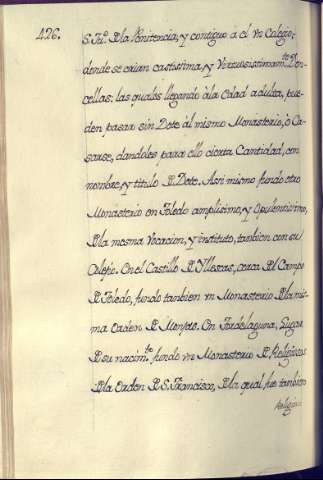 426.
S. Jũ. de la Penitencia, y contiguo à él vn Colegio,
donde se crian castissima, y Virtuosissimamte. Don-
cellas: las quales llegando à la edad adulta, pue-
den pasar sin Dote al mismo Monasterio, ò Ca-
sarse, dandoles para ello cierta Cantidad, con
nombre, y titulo de Dote. Assi mismo fundo otro
Monasterio en Toledo amplisimo, y Opulentissimo,
de la mesma Vocacion, y instituto, tambien con su
Colegio. En el Castillo de Yllescas, cerca del Campo
de Toledo, fundo tambien vn Monasterio de la mis-
ma Orden de Monjas. En Tordelaguna, Lugar
de su nacimto. fundo vn Monasterio de Religiosos
de la Orden de S. Francisco, de la qual fue tambien
Religio